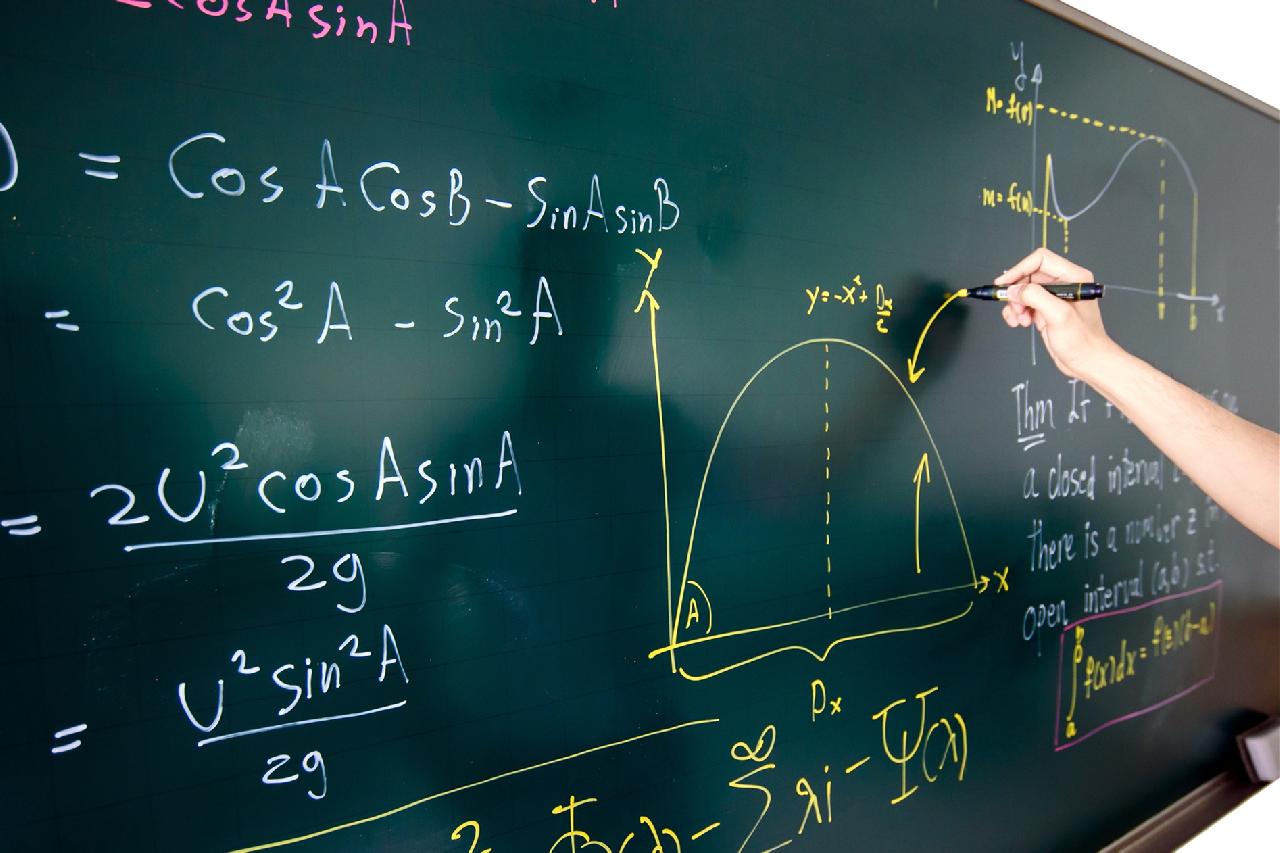 cosA sinA
) = Cos A CosB - SinA sinB
= Cos² A - Sin² A
= 2U² cos A sin A / 2g
= U² sin² A / 2g
Y
y = -x² +
A)
X
Dx
∞
Σ λi - Ψ(λ)
2 Φ(λ) -
y
x
b
Thm If
a closed interval
there is a number z
open interval (a,b) s.t.
∫ₐᵇ f(x)dx = f(z)(b-a)